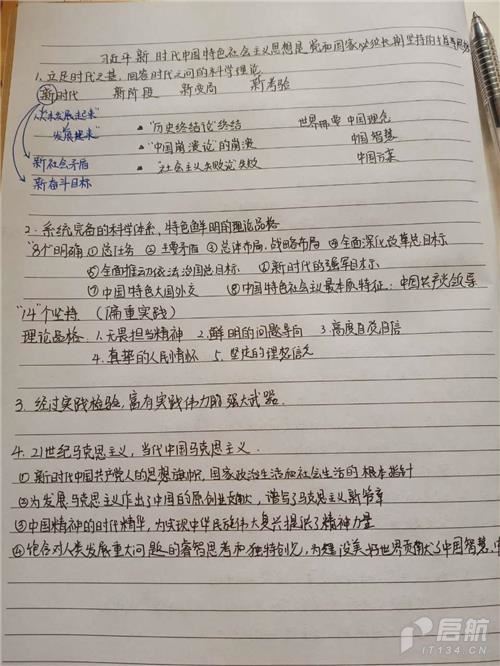 习近平新时代中国特色社会主义思想是党和国家必须长期坚持的指导思想
1. 立足时代之基，回答时代之问的科学理论
新时代 新阶段 新变局 新考验
"从未发展起来"
发展起来"
·"历史终结论"终结 世界需要 中国理念
·"中国崩溃论"的崩溃 中国智慧
新社会矛盾 ·"社会主义失败论"失败 中国方案
新奋斗目标
2. 系统完备的科学体系、特色鲜明的理论品格
"8个"明确 ①总任务 ②主要矛盾 ③总体布局，战略布局 ④全面深化改革总目标
⑤全面推动依法治国总目标 ⑥新时代的强军目标
⑦中国特色大国外交 ⑧中国特色社会主义最本质特征：中国共产党领导
"14"个坚持（偏重实践）
理论品格 1. 无畏担当精神 2. 鲜明的问题导向 3. 高度自觉自信
4. 真挚的人民情怀 5. 坚定的理想信念
3. 经过实践检验，富有实践伟力的强大武器.
4. 21世纪马克思主义，当代中国马克思主义.
①新时代中国共产党人的思想旗帜，国家政治生活和社会生活的根本指针
②为发展马克思主义作出了中国的原创业贡献，谱写了马克思主义新篇章
③中国精神的时代精华，为实现中华民族伟大复兴提供了精神力量
④饱含对人类发展重大问题的睿智思考和独特创见，为建设美好世界贡献了中国智慧，中
启航
IT134.CN